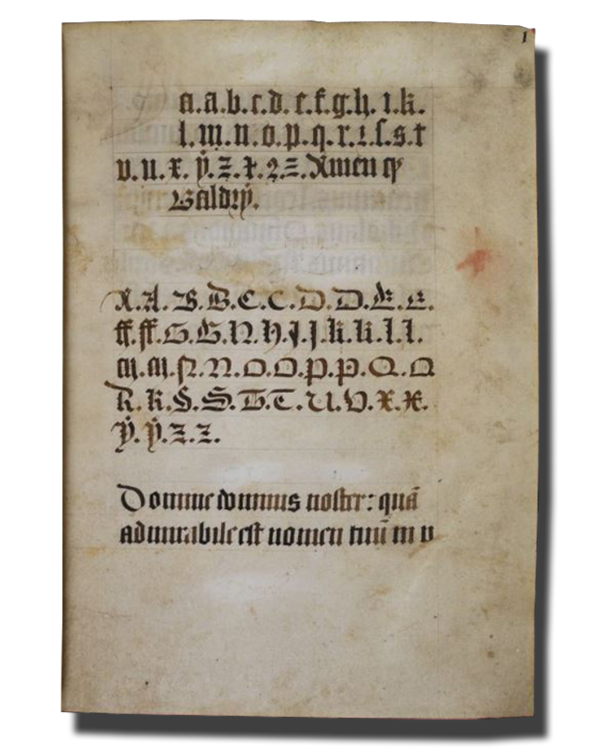 1
a.a.b.c.d.e.f.g.h.i.k.
l.m.n.o.p.q.r.ꝛ.ſ.s.t
v.u.x.ẏ.z.
Baldrẏ.
A.A.B.B.C.C.D.D.E.E.
ff.ff.G.G.H.H.J.J.K.K.L.L.
M.M.N.N.O.O.P.P.Q.Q
R.R.S.S.T.T.U.V.X.X.
Ẏ.Ẏ.Z.Z.
Domine dominus noster: quā
admirabile est nomen tuū in v